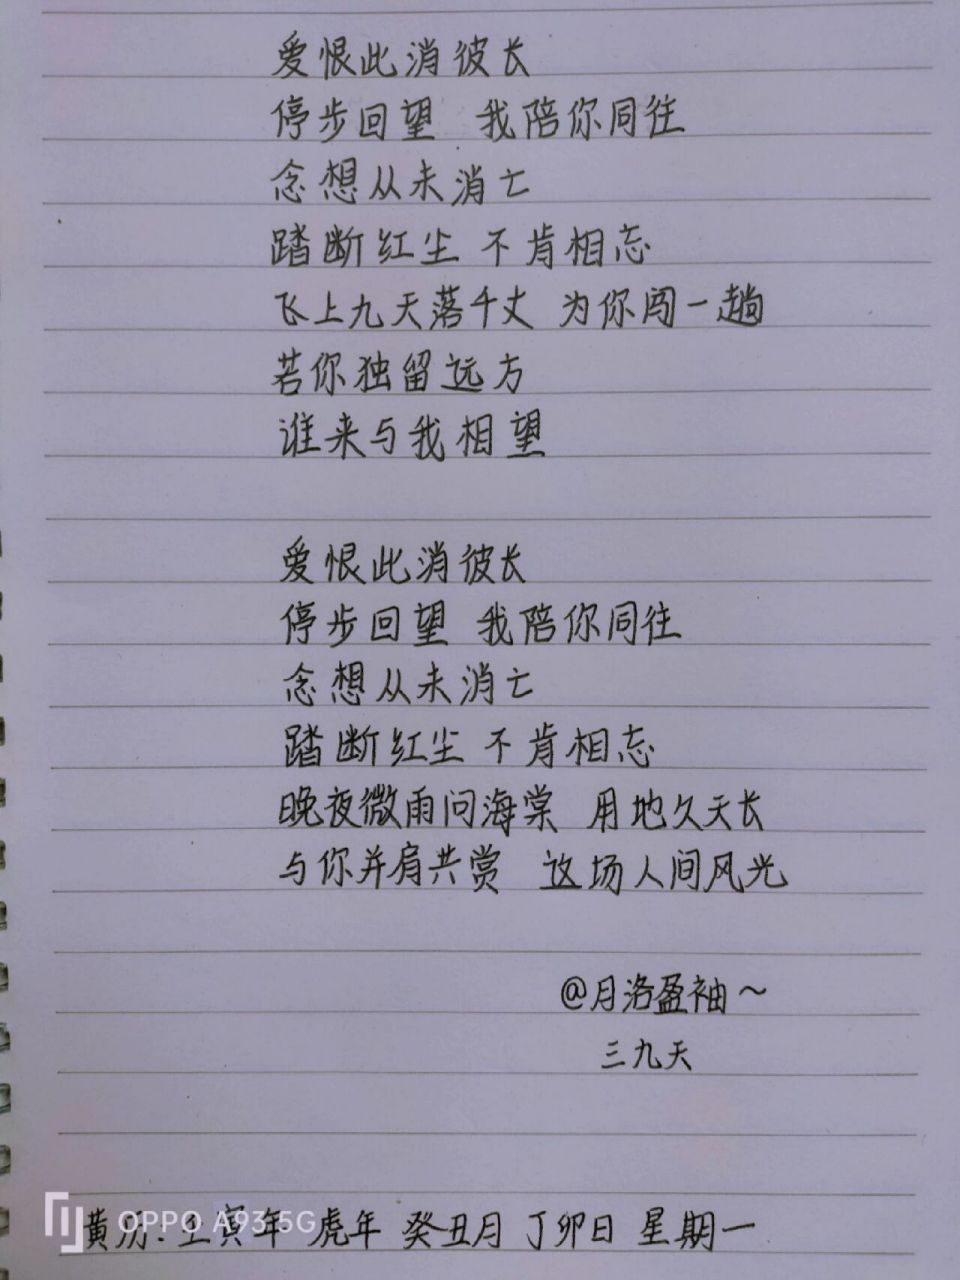 爱恨此消彼长
停步回望 我陪你同往
念想从未消亡
踏断红尘 不肯相忘
飞上九天落千丈 为你闯一趟
若你独留远方
谁来与我相望
爱恨此消彼长
停步回望 我陪你同往
念想从未消亡
踏断红尘 不肯相忘
晚夜微雨问海棠 用地久天长
与你并肩共赏 这场人间风光
@月洛盈袖~
三九天
黄历:壬寅年 虎年 癸丑月 丁卯日 星期一
OPPO A93 5G